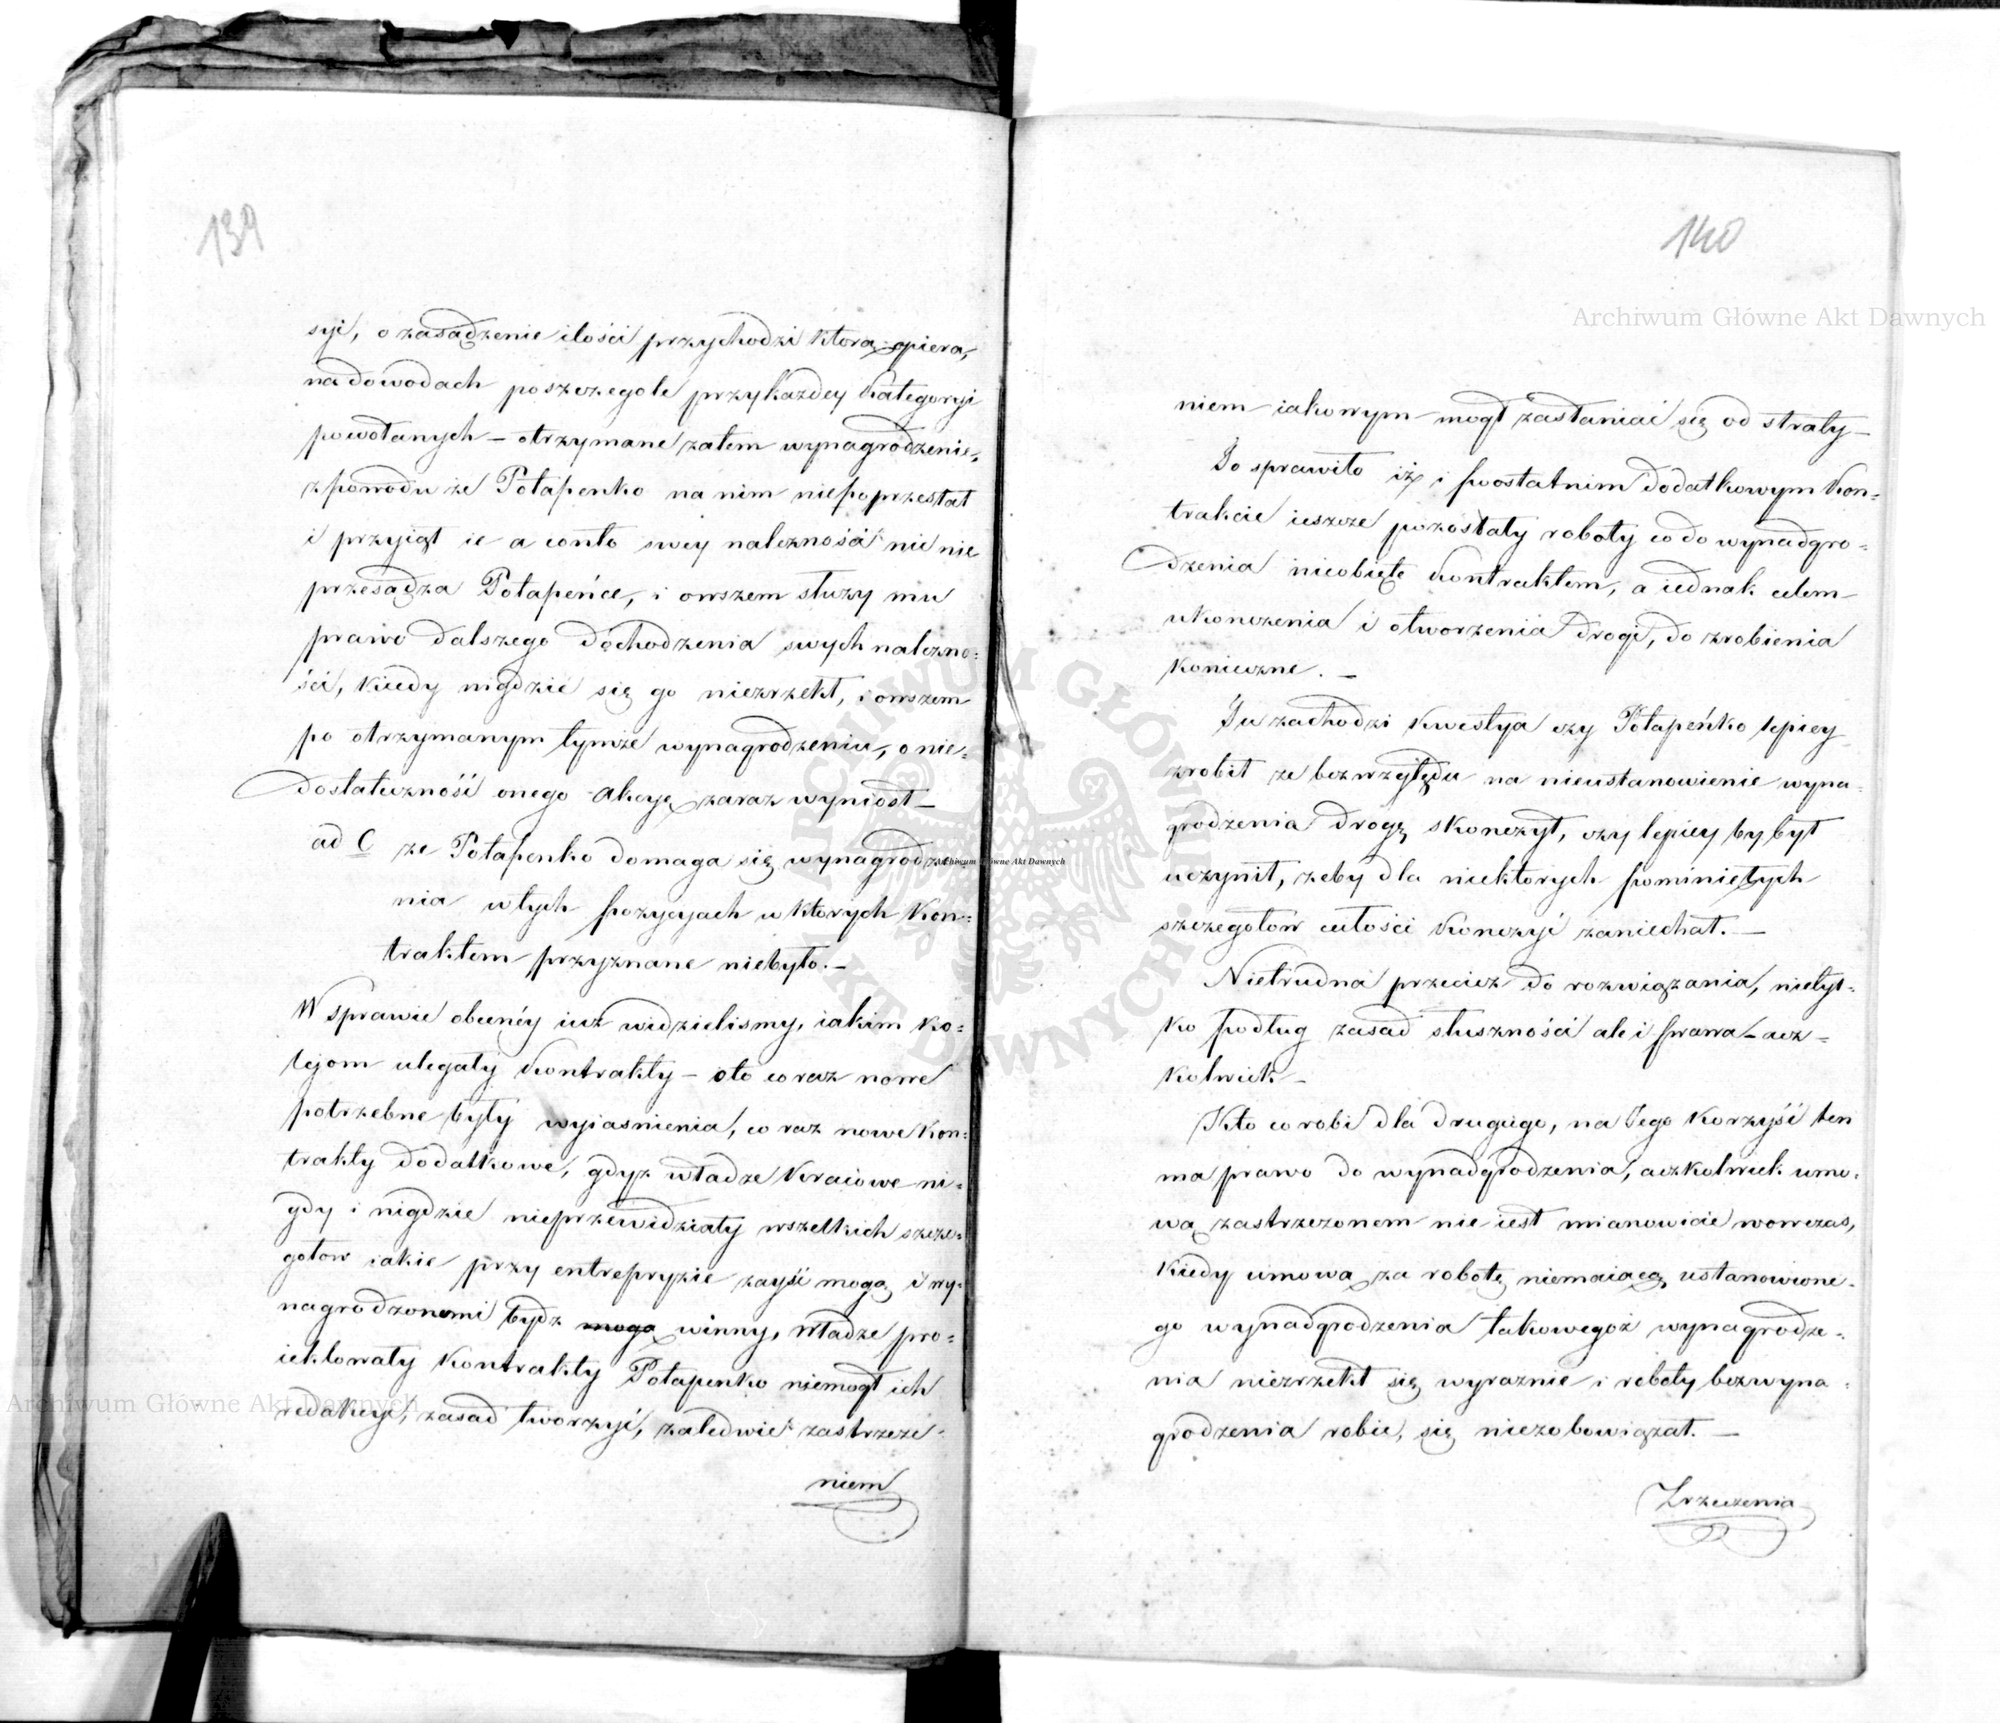 139
syi, o zasądzenie ilości przychodzi którą opiera,
na dowodach poszczegole przykażdey Kategoryi
powołanych – otrzymane zatem wynagrodzenie,
z powodu że Potapenko na nim niepoprzestał
i przyiął ie a conto swey należności nic nie
przesądza Potapeńce, i owszem służy mu
prawo dalszego dochodzenia swych należno=
ści, kiedy nigdzie się go niezrzekł, i owszem
po otrzymanym tymże wynagrodzeniu, o nie=
dostateczność onego akcyę zaraz wyniósł –
ad C że Potapenko domaga się wynagrodze=
nia w tych pozycyach w których Kon=
traktem przyznane niebyło. –
W sprawie obecnéy iuż widzieliśmy, iakim ko=
lejom ulegały Kontrakty – oto co raz nowe
potrzebne były wyiaśnienia, co raz nowe Kon=
trakty dodatkowe, gdyż władze Kraiowe ni=
gdy i nigdzie nieprzewidziały wszelkich szcze=
gołow iakie przy entrepryzie zayść mogą i wy=
nagrodzonemi bydź mogą winny, władze pro=
iektowały Kontrakty Potapenko niemogł ich
redakcyi, zasad tworzyć, zaledwie zastrzeże=
niem
140
niem iakowym mogł zasłaniać się od straty –
To sprawiło iż i po ostatnim dodatkowym Kon=
trakcie ieszcze pozostały roboty co do wynadgro=
dzenia nieobięte Kontraktem, a iednak celem
ukonczenia i otworzenia drogi, do zrobienia
konieczne. –
Tu zachodzi kwestya czy Potapeńko lepiey
zrobił że bez względu na nieustanowienie wyna=
grodzenia drogę skonczył, czy lepiey by był
uczynił, żeby dla niektorych pominiętych
szczegołów całości Konczyć zaniechał. –
Nietrudna przecież do rozwiązania, nietyl=
ko podług zasad słuszności ale i prawa – acz=
kolwiek –
Kto co robi dla drugiego, na Jego Korzyść ten
ma prawo do wynadgrodzenia, aczkolwiek umo=
wą zastrzeżonem nie iest mianowicie wowczas,
kiedy umową za robotę niemaiącą ustanowione=
go wynadgrodzenia takowegoż wynagrodze=
nia niezrzekł się wyraźnie i roboty bez wyna=
grodzenia robić, się niezobowiązał. –
Zrzeczenia
Archiwum Główne Akt Dawnych
Archiwum Główne Akt Dawnych
Archiwum Główne Akt Dawnych
ARCHIWUM GŁÓWNE AKT DAWNYCH